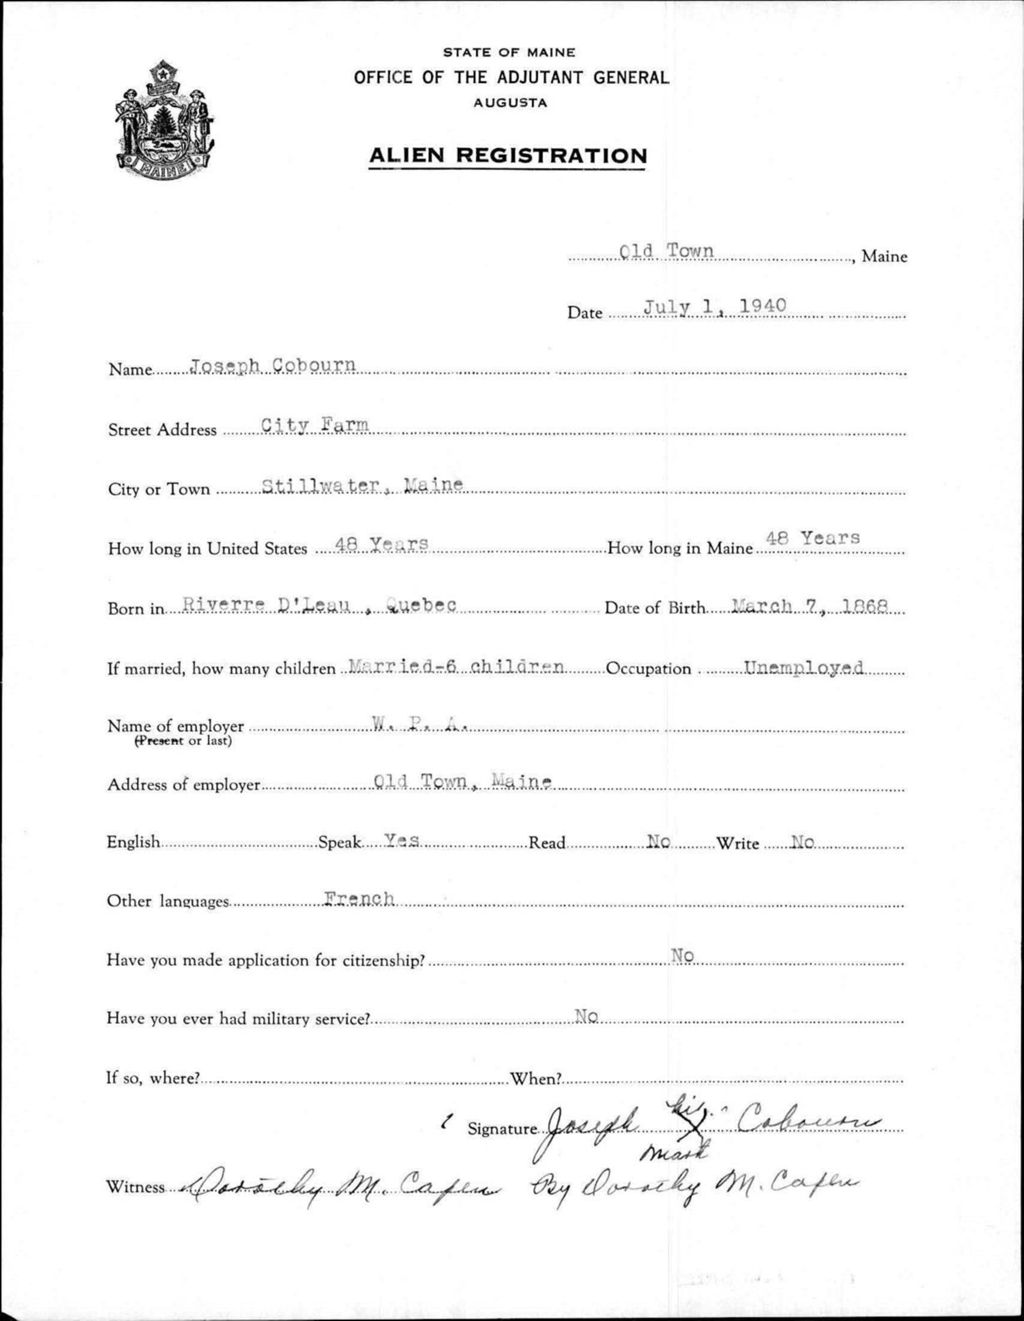 STATE OF MAINE
OFFICE OF THE ADJUTANT GENERAL
AUGUSTA
ALIEN REGISTRATION
MAINE
Old Town, Maine
Date July 1, 1940
Name Joseph Cobourn
Street Address City Farm
City or Town Stillwater, Maine
How long in United States 48 Years How long in Maine 48 Years
Born in Riverre D'Leau, Quebec Date of Birth March 7, 1868
If married, how many children Married-6 children Occupation Unemployed
Name of employer W. P. A.
(Present or last)
Address of employer Old Town, Maine
English Speak Yes Read No Write No
Other languages French
Have you made application for citizenship? No
Have you ever had military service? No
If so, where? When?
Signature Joseph his X Cobourn
mark
Witness Dorothy M. Capen By Dorothy M. Capen